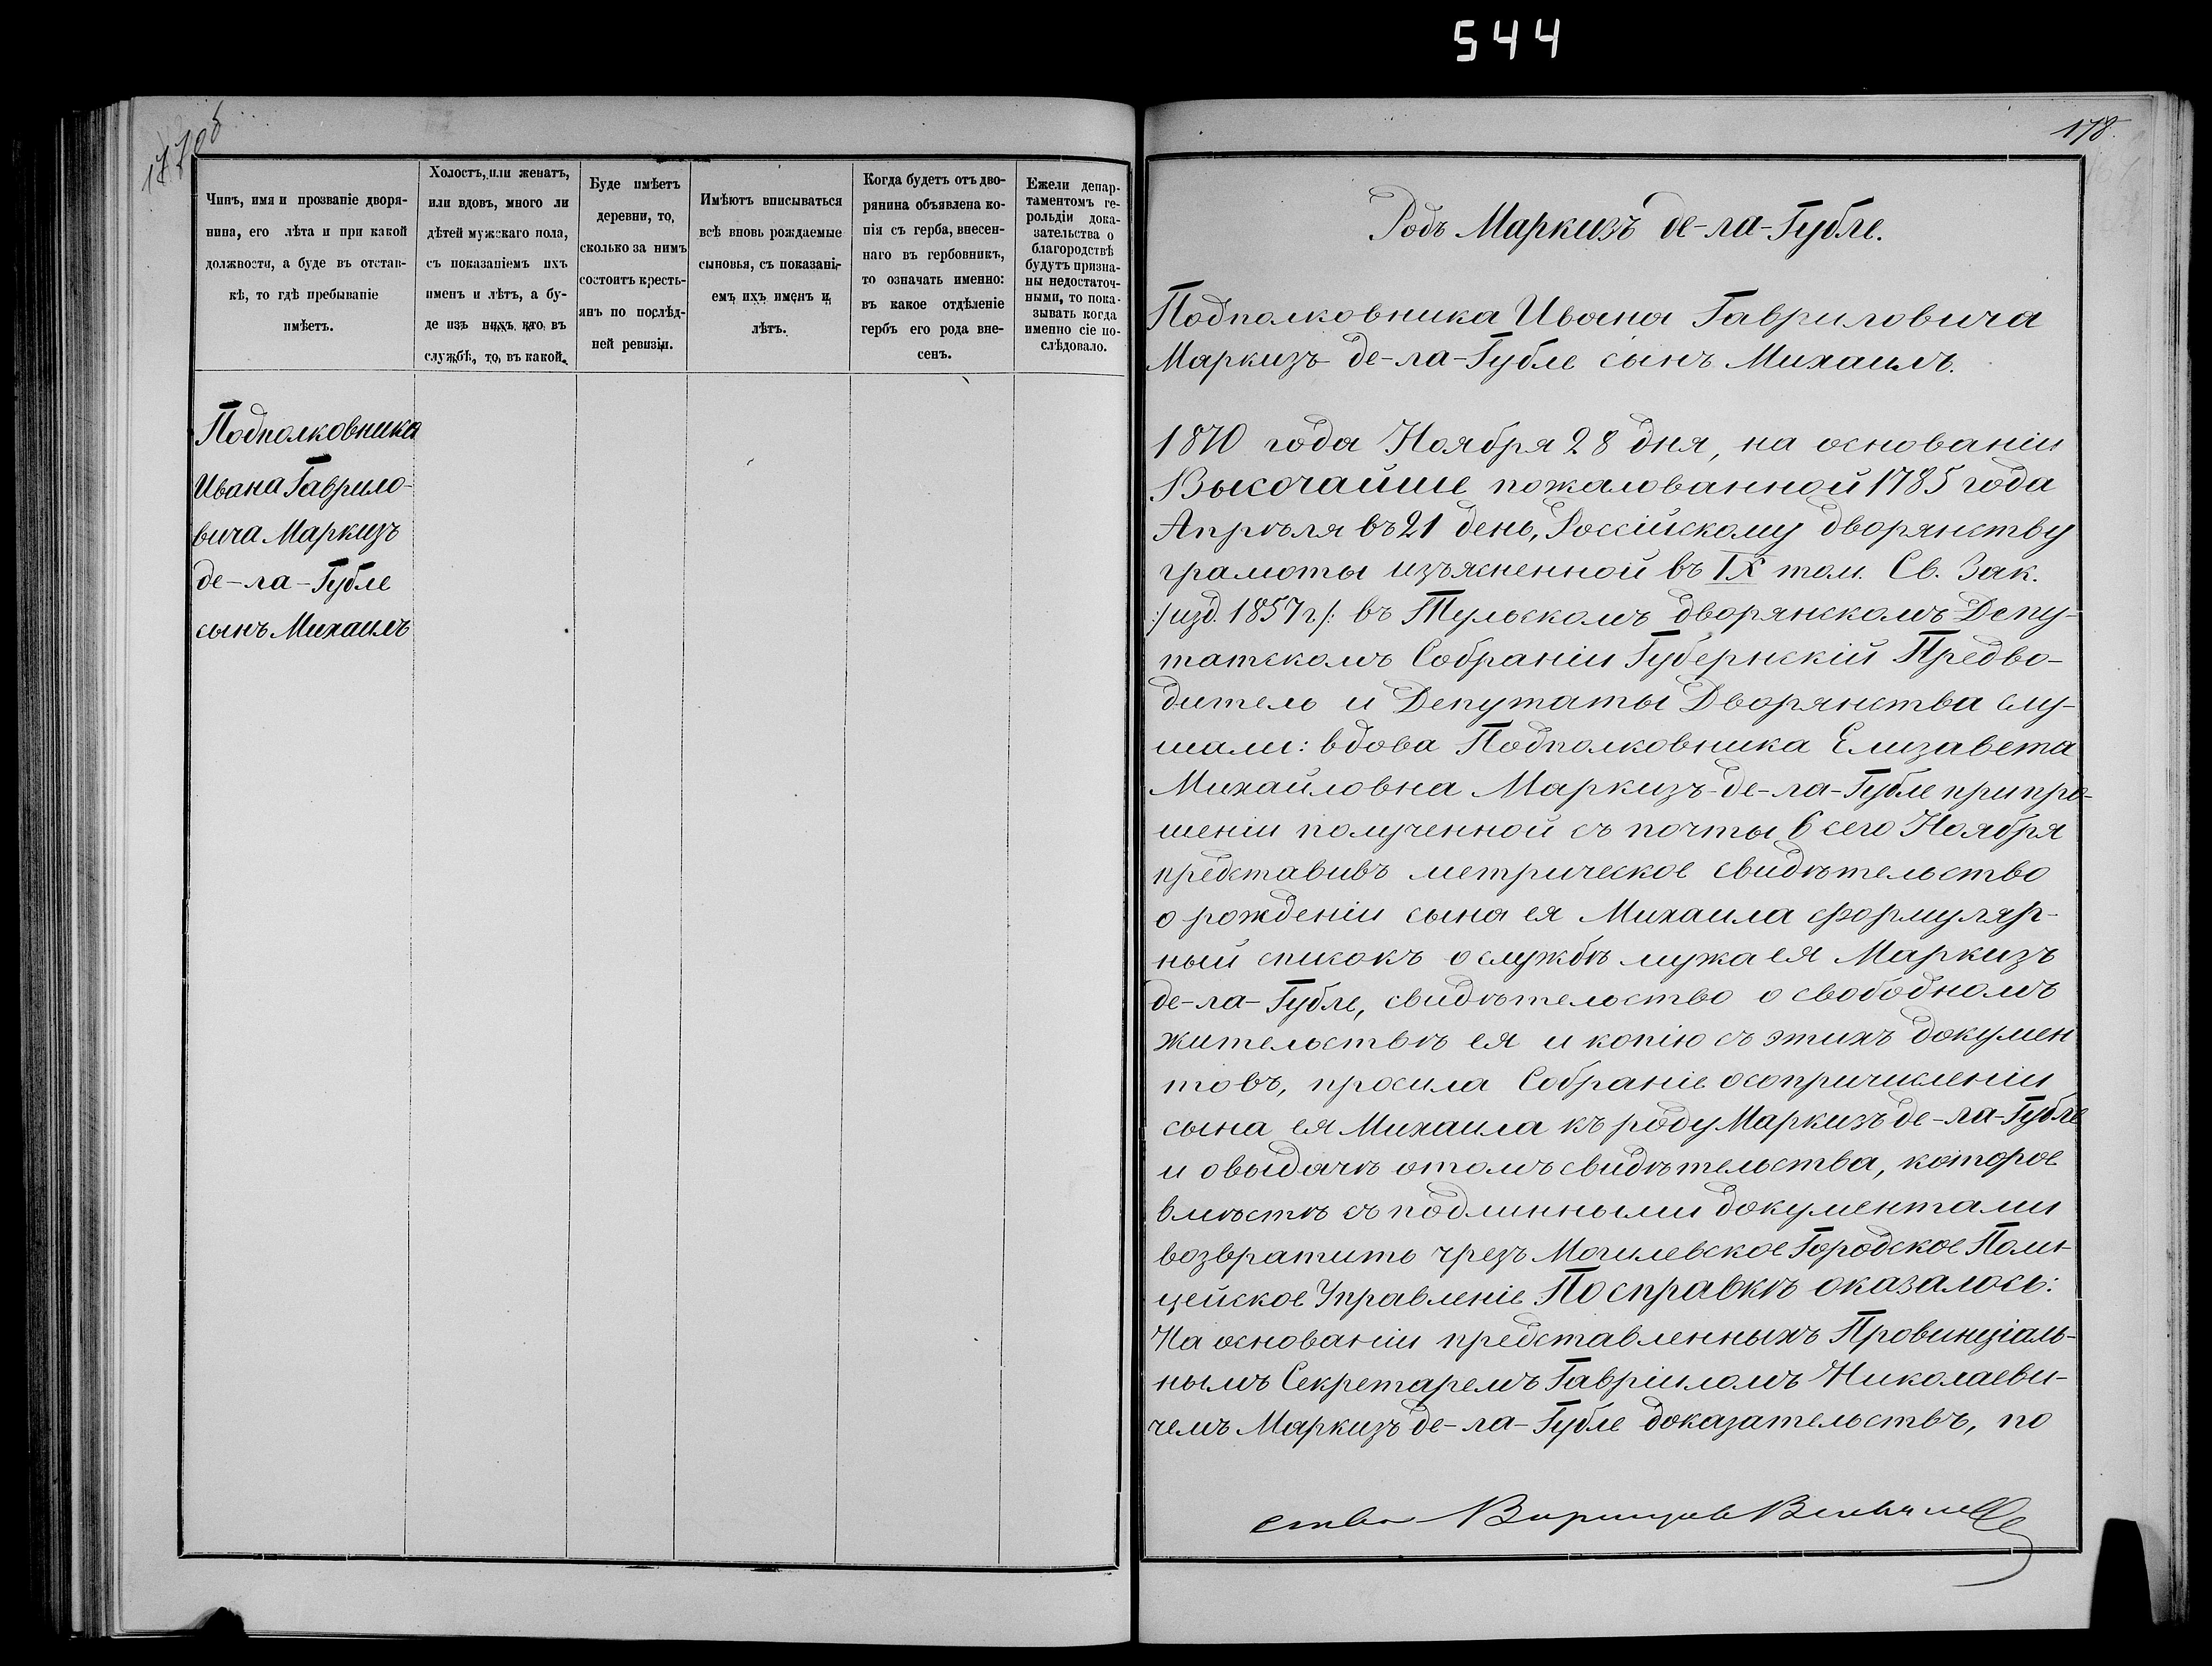 544
178.
Чинъ, имя и прозваніе дворя-
нина, его лѣта и при какой
должности, а буде въ отстав-
кѣ, то гдѣ пребываніе
имѣетъ.
Холостъ, или женатъ,
или вдовъ, много ли
дѣтей мужскаго пола,
съ показаніемъ ихъ
именъ и лѣтъ, а бу-
де изъ нихъ кто въ
службѣ, то, въ какой.
Буде имѣетъ
деревни, то,
сколько за нимъ
состоитъ кресть-
янъ по послѣд-
ней ревизіи.
Имѣютъ вписываться
всѣ вновь рождаемые
сыновья, съ показані-
емъ ихъ именъ и
лѣтъ.
Когда будетъ отъ дво-
рянина объявлена ко-
пія съ герба, внесен-
наго въ гербовникъ,
то означать именно:
въ какое отдѣленіе
гербъ его рода вне-
сенъ.
Ежели депар-
таментомъ ге-
рольдіи дока-
зательства о
благородствѣ
будутъ призна-
ны недостаточ-
ными, то пока-
зывать когда
именно сіе по-
слѣдовало.
Подполковника
Ивана Гаврило-
вича Маркизъ
де-ла-Губле
сынъ Михаилъ
Родъ Маркизъ де-ла-Губле.
Подполковника Ивана Гавриловича
Маркизъ де-ла-Губле сынъ Михаилъ.
1870 года Ноября 28 дня, на основаніи
Высочайше пожалованной 1785 года
Апрѣля въ 21 день, Россійскому дворянству
грамоты изъясненной въ IX том. Св. Зак.
:/изд. 1857 г/: въ Тульскомъ дворянскомъ Депу-
татскомъ Собраніи Губернскій Предво-
дитель и Депутаты Дворянства слу-
шали: вдова Подполковника Елизавета
Михайловна Маркизъ-де-ла-Губле при про-
шеніи полученной съ почты 6 сего Ноября
представивъ метрическое свидѣтельство
о рожденіи сына ея Михаила формуляр-
ный списокъ о службѣ мужа ея Маркизъ
де-ла-Губле, свидѣтельство о свободномъ
жительствѣ ея и копію съ этихъ докумен
товъ, просила Собраніе о сопричисленіи
сына ея Михаила къ роду Маркизъ де-ла-Губле
и о выдачѣ о томъ свидѣтельства, которое
вмѣстѣ съ подлинными документами
возвратить чрезъ Могилевское Городское Поли-
цейское Управленіе. По справкѣ оказалось:
На основаніи представленныхъ Провинціаль-
нымъ Секретаремъ Гавріиломъ Николаеви-
чемъ Маркизъ де-ла-Губле доказательствъ, по
ства